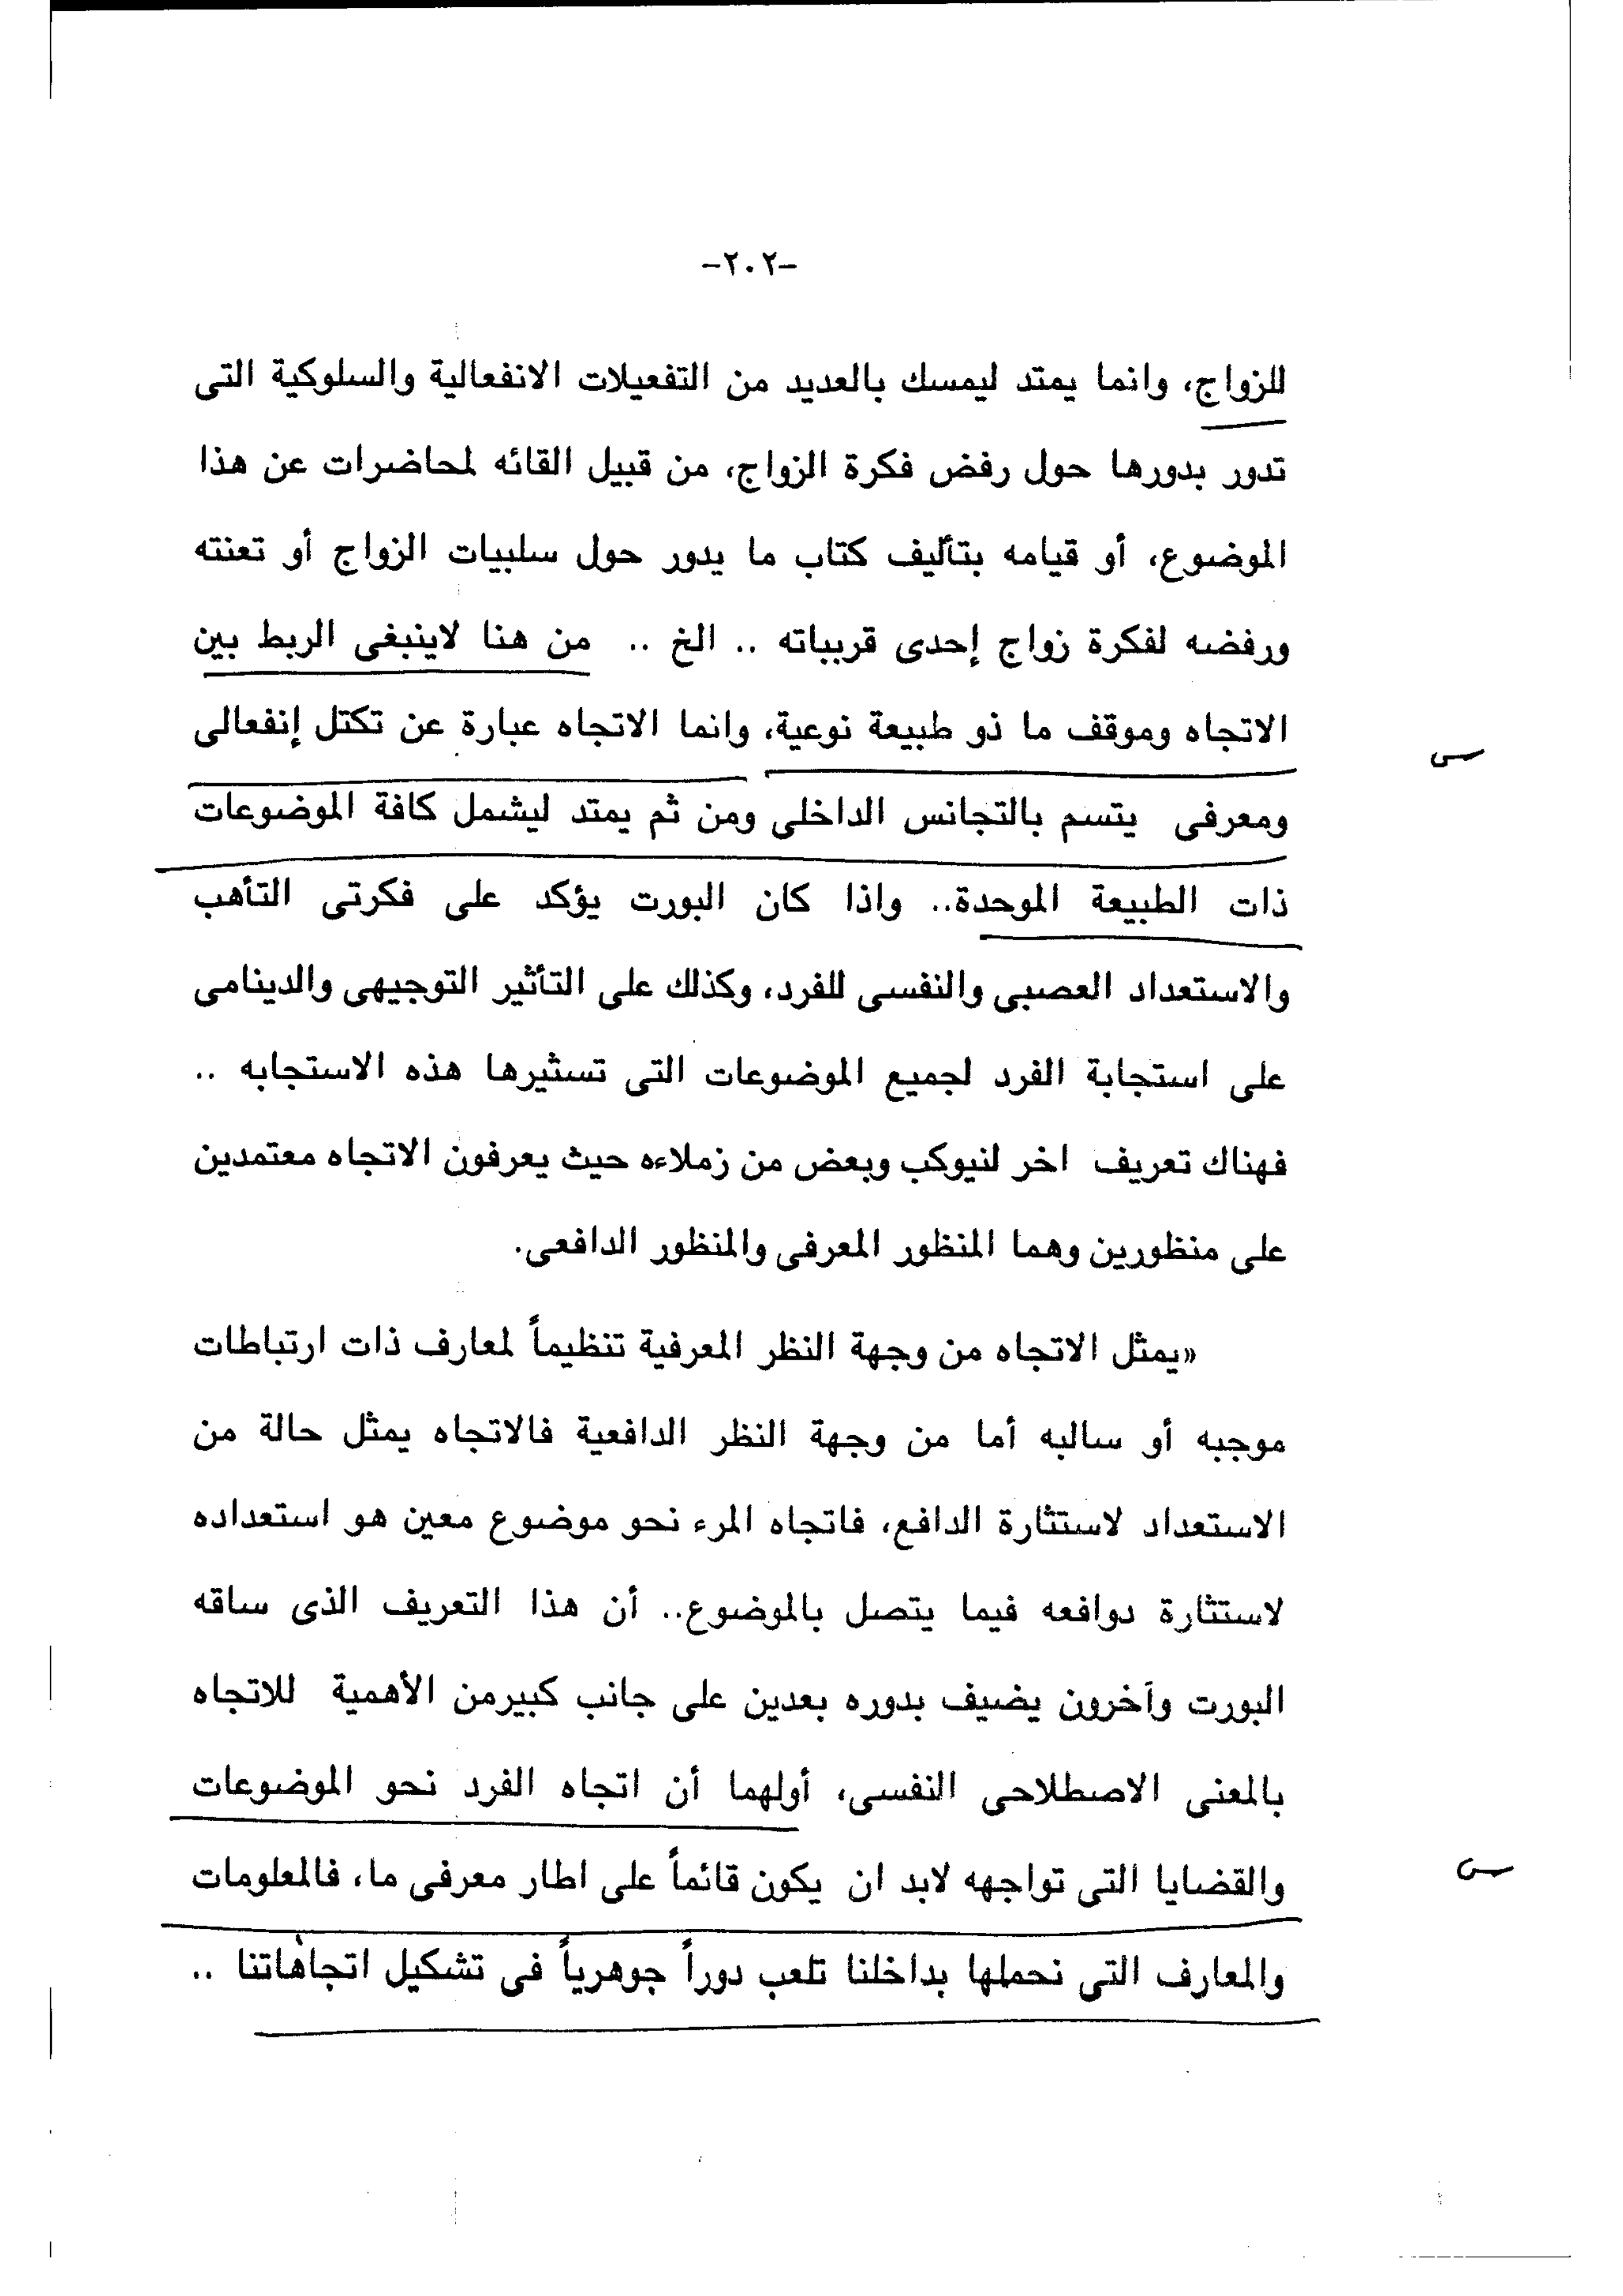 -٢٠٢-
للزواج، وانما يمتد ليمسك بالعديد من التفعيلات الانفعالية والسلوكية التى
تدور بدورها حول رفض فكرة الزواج، من قبيل القائه لمحاضرات عن هذا
الموضوع، أو قيامه بتأليف كتاب ما يدور حول سلبيات الزواج أو تعنته
ورفضه لفكرة زواج إحدى قريباته .. الخ .. من هنا لاينبغى الربط بين
الاتجاه وموقف ما ذو طبيعة نوعية، وانما الاتجاه عبارة عن تكتل إنفعالى
ومعرفى يتسم بالتجانس الداخلى ومن ثم يمتد ليشمل كافة الموضوعات
ذات الطبيعة الموحدة.. واذا كان البورت يؤكد على فكرتى التأهب
والاستعداد العصبى والنفسى للفرد، وكذلك على التأثير التوجيهى والدينامى
على استجابة الفرد لجميع الموضوعات التى تستثيرها هذه الاستجابه ..
فهناك تعريف اخر لنيوكب وبعض من زملاءه حيث يعرفون الاتجاه معتمدين
على منظورين وهما المنظور المعرفى والمنظور الدافعى.
«يمثل الاتجاه من وجهة النظر المعرفية تنظيماً لمعارف ذات ارتباطات
موجبه أو سالبه أما من وجهة النظر الدافعية فالاتجاه يمثل حالة من
الاستعداد لاستثارة الدافع، فاتجاه المرء نحو موضوع معين هو استعداده
لاستثارة دوافعه فيما يتصل بالموضوع.. أن هذا التعريف الذى ساقه
البورت وآخرون يضيف بدوره بعدين على جانب كبيرمن الأهمية للاتجاه
بالمعنى الاصطلاحى النفسى، أولهما أن اتجاه الفرد نحو الموضوعات
والقضايا التى تواجهه لابد ان يكون قائماً على اطار معرفى ما، فالمعلومات
والمعارف التى نحملها بداخلنا تلعب دوراً جوهرياً فى تشكيل اتجاهاتنا ..